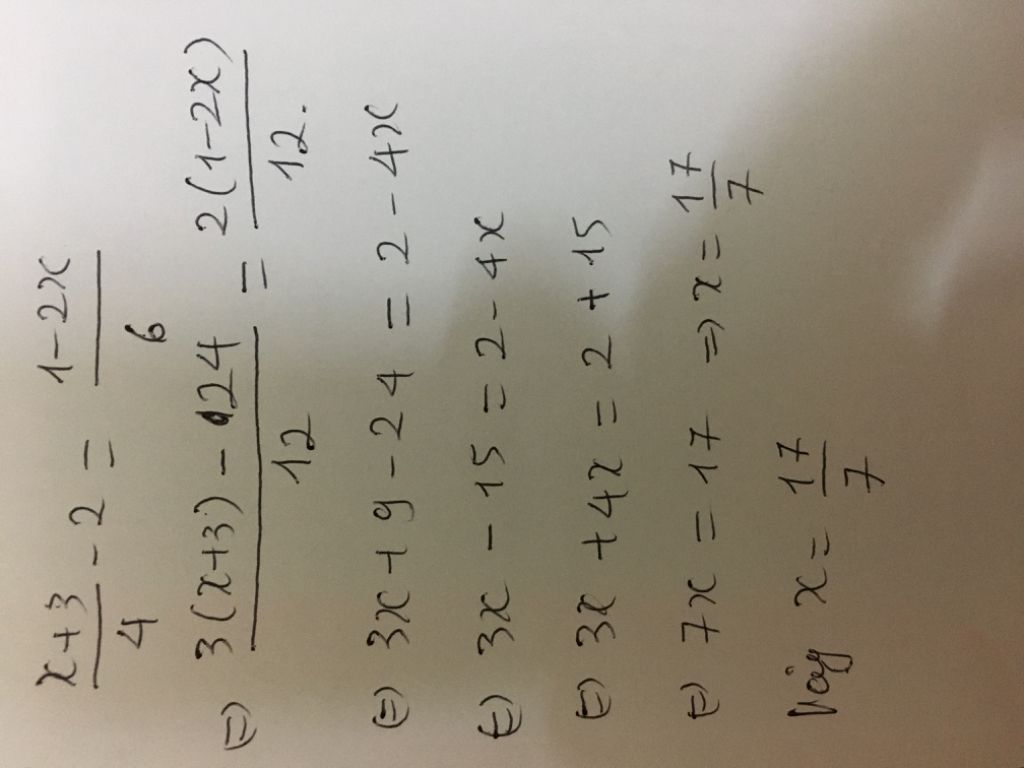 x+3/4 - 2 = 1-2x/6
(=) 3(x+3) - 24/12 = 2(1-2x)/12.
(=) 3x + 9 - 24 = 2 - 4x
(=) 3x - 15 = 2 - 4x
(=) 3x + 4x = 2 + 15
(=) 7x = 17 => x = 17/7
Vậy x = 17/7